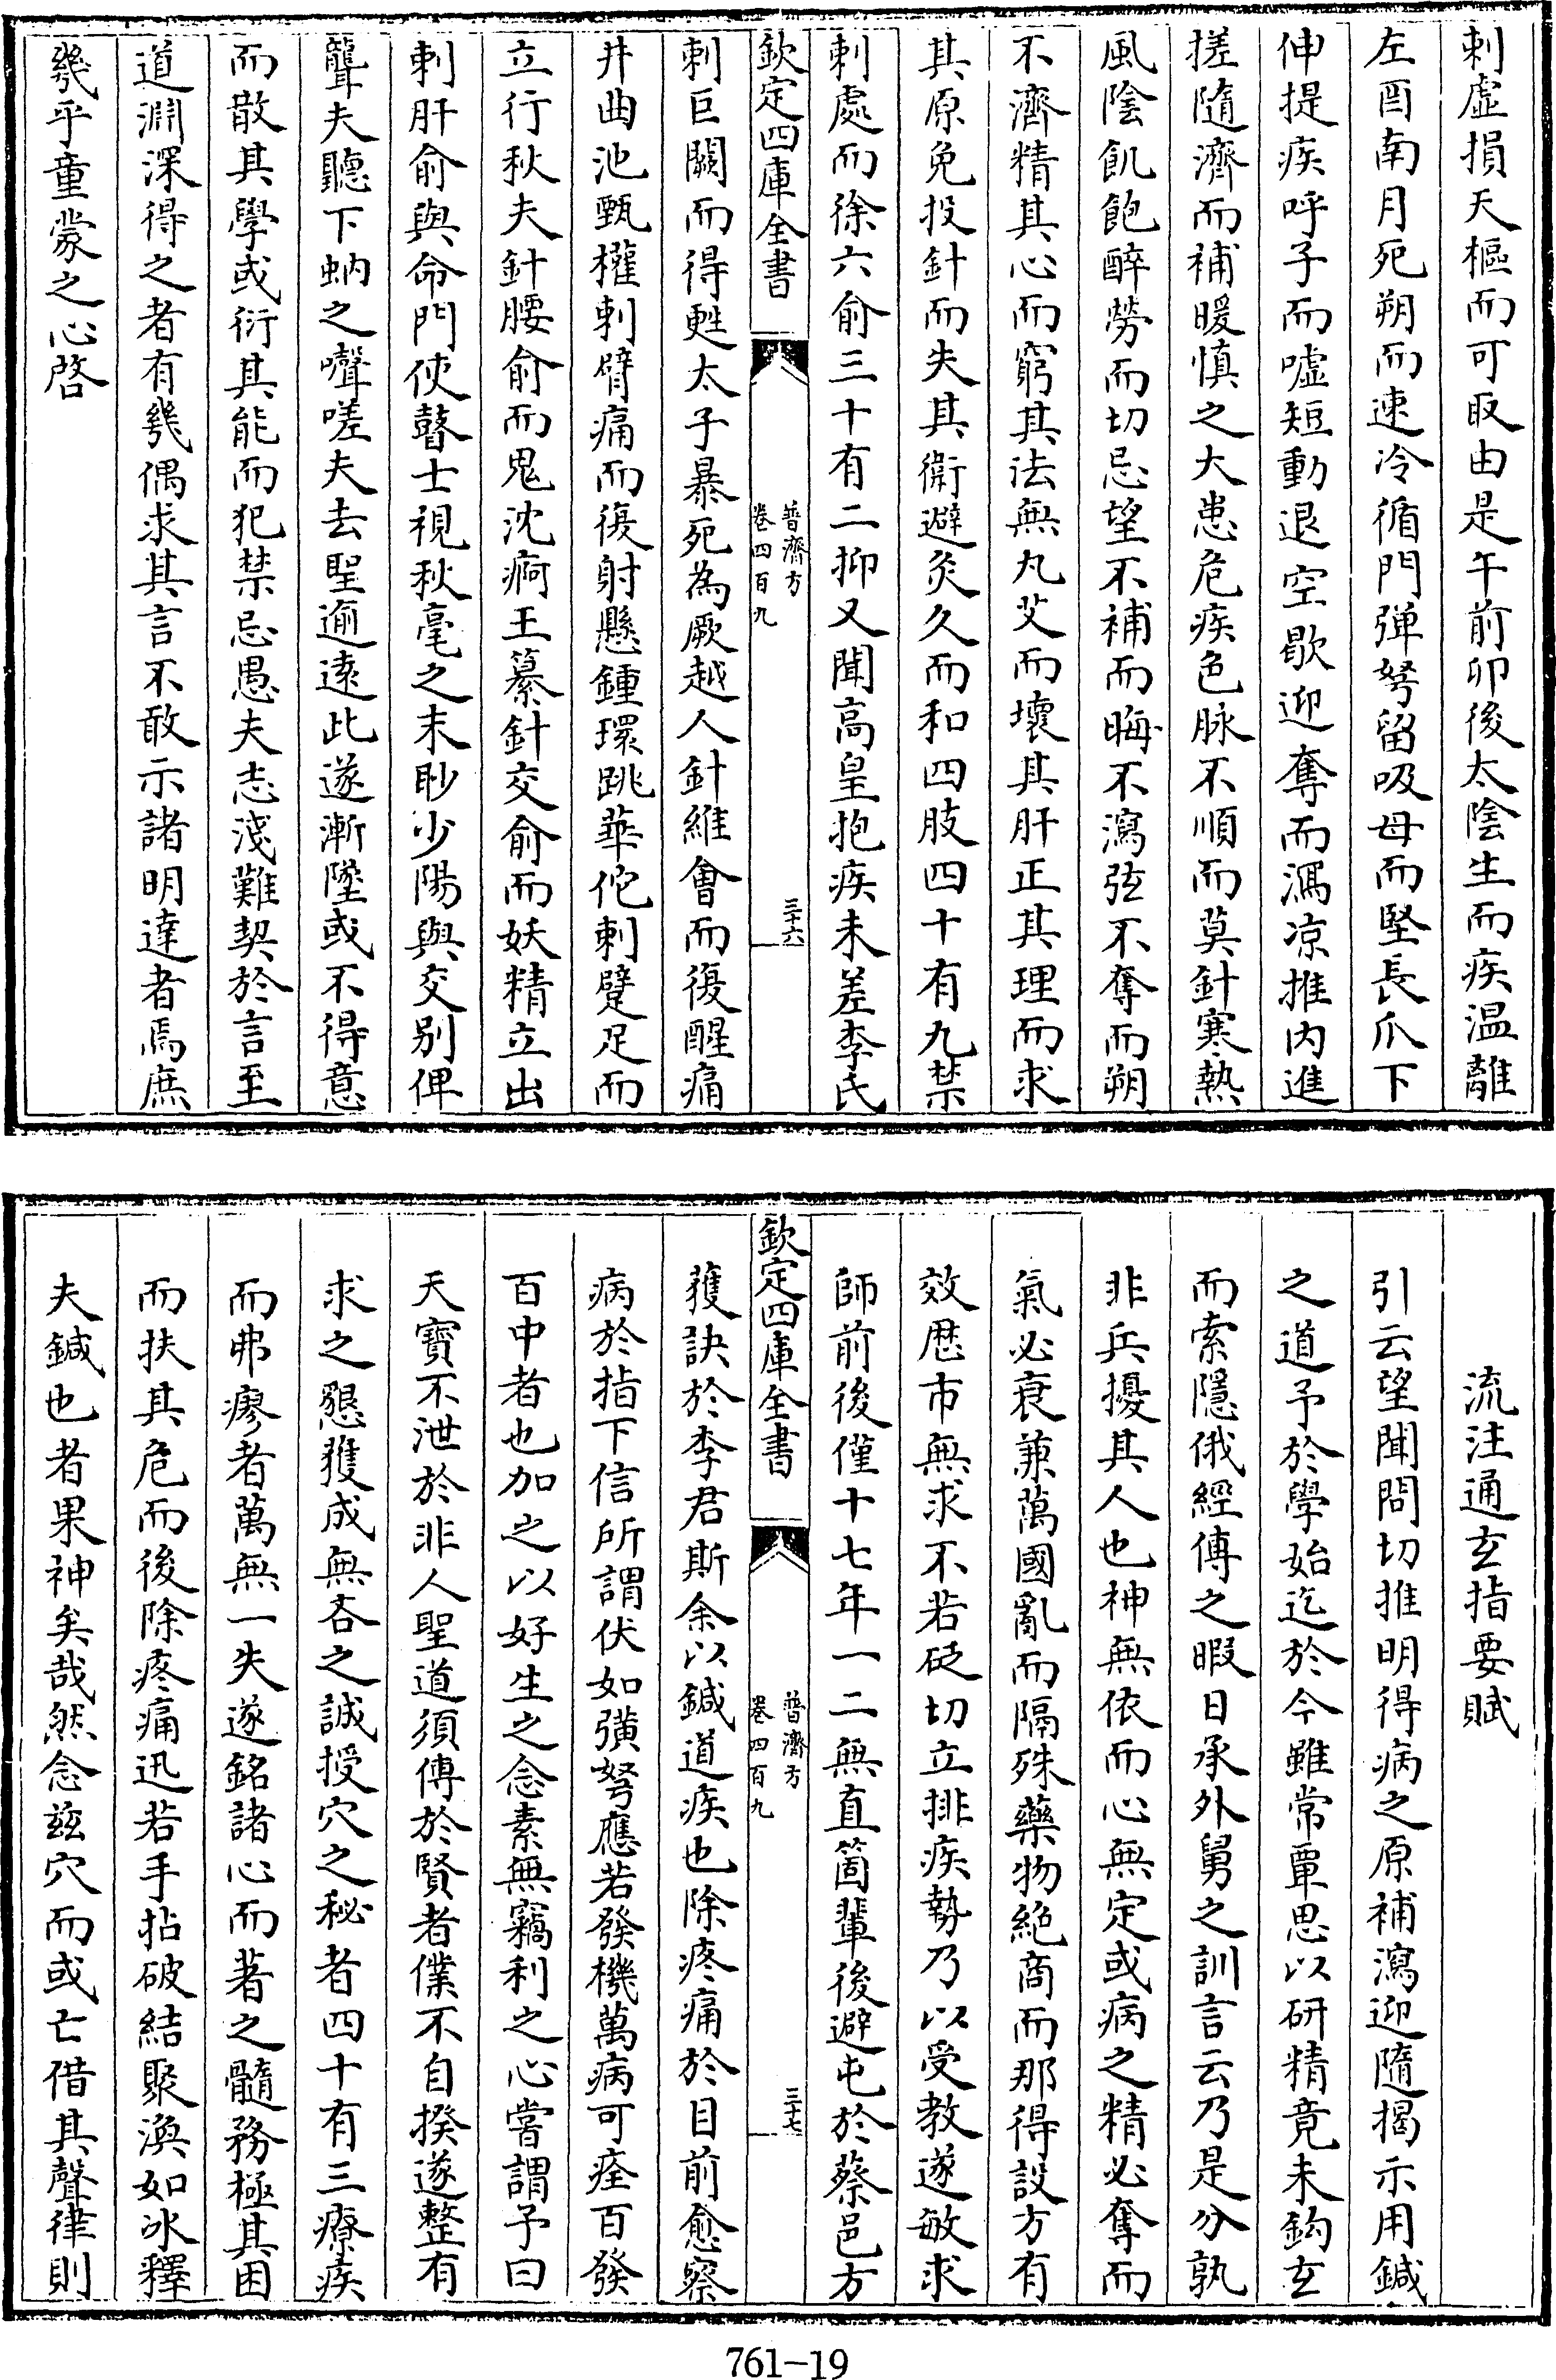 刺虛損天樞而可取由是午前卯後太陰生而疾温離
左酉南月死朔而速冷循門弹弩留吸母而堅長爪下
伸提疾呼子而噓短動退空歇迎奪而瀉凉推内進
搓隨濟而補暖慎之大患危疾色脉不順而莫針寒熱
風陰飢飽醉勞而切忌望不補而晦不瀉弦不奪而朔
不濟精其心而窮其法無丸艾而壞其肝正其理而求
其原免投針而失其衛避灸久而和四肢四十有九禁
刺處而徐六俞三十有二抑又聞高皇抱疾未差李氏
欽定四庫全書
普濟方
卷四百九
三十六
刺巨闕而得甦太子暴死為厥越人針維會而復醒痛
井曲池甄權刺臂痛而復射懸鍾環跳華佗刺躄足而
立行秋夫針腰俞而鬼沈痾王纂針交俞而妖精立出
刺肝俞與命門使瞽士視秋毫之末眇少陽與交别俾
聾夫聽下蚋之嚾嗟夫去聖逾逺此遂漸墜或不得意
而散其學或衍其能而犯禁忌愚夫志淺難契於言至
道淵深得之者有幾偶求其言不敢示諸明達者焉庶
幾乎童蒙之心啓
流注通玄指要賦
引云望聞問切推明得病之原補瀉迎隨揭示用鍼
之道予於學始迄於今雖常覃思以研精竟未鈎玄
而索隱俄經傳之暇日承外舅之訓言云乃是分孰
非兵擾其人也神無依而心無定或病之精必奪而
氣必衰兼萬國亂而隔殊藥物絶商而那得設方有
效厯市無求不若砭切立排疾勢乃以受教遂敏求
師前後僅十七年一二無直箇輩後避屯於蔡邑方
欽定四庫全書
普濟方
卷四百九
三十七
獲訣於李君斯余以鍼道疾也除疼痛於目前愈察
病於指下信所謂伏如彉弩應若發機萬病可痊百發
百中者也加之以好生之念素無竊利之心嘗謂予曰
天寶不泄於非人聖道須傳於賢者僕不自揆遂整有
求之懇獲成無吝之誠授穴之秘者四十有三療疾
而弗瘳者萬無一失遂銘諸心而著之髓務極其困
而扶其危而後除疼痛迅若手拈破結聚渙如冰釋
夫鍼也者果神矣哉然念兹穴而或亡借其聲律則
761-19